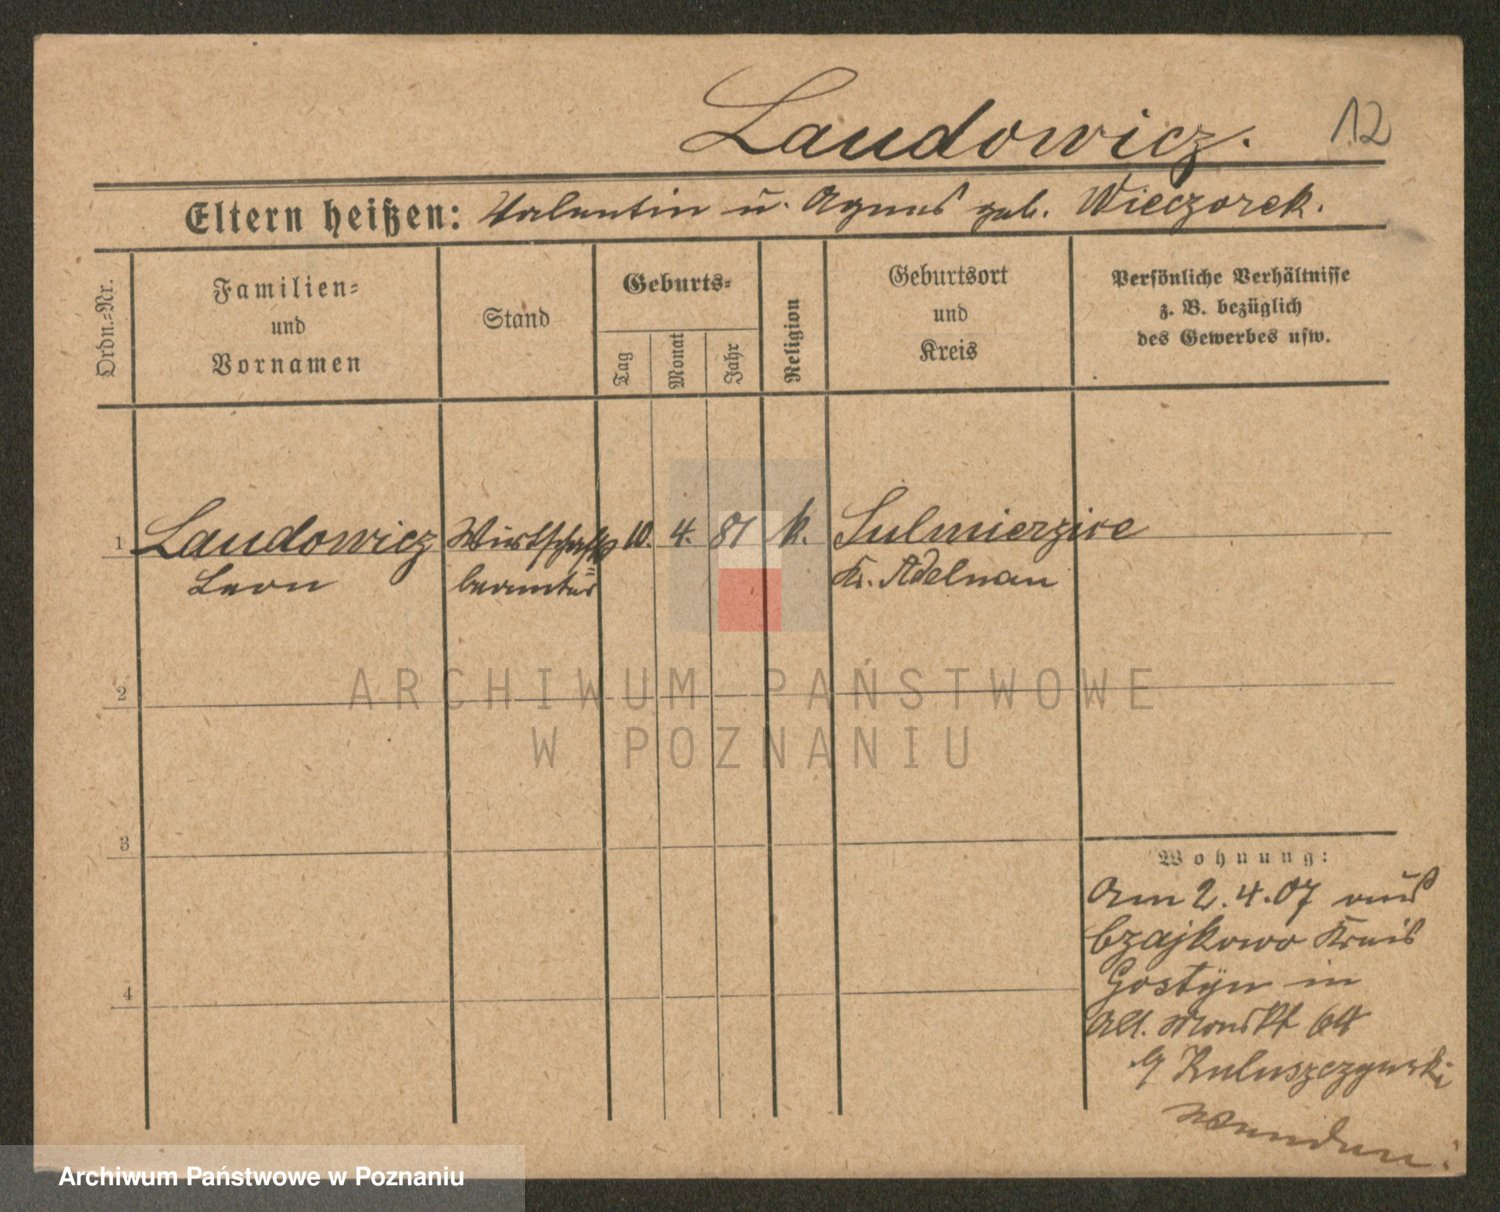 Laudowicz.
12
Eltern heißen: Valentin u. Agnes geb. Wieczorek.
Ordn.=Nr.
Familien=
und
Vornamen
Stand
Geburts=
Tag
Monat
Jahr
Religion
Geburtsort
und
Kreis
Persönliche Verhältnisse
z. B. bezüglich
des Gewerbes usw.
1 Laudowicz Wirtschafts 10. 4. 81 k. Sulmierzice
Leon beamter Kr. Adelnau
2
ARCHIWUM PAŃSTWOWE
W POZNANIU
3
4
Wohnung:
Am 2.4.07 aus
Czajkowo Kreis
Gostyn in
Alt. Markt 64
Wenden!
Archiwum Państwowe w Poznaniu